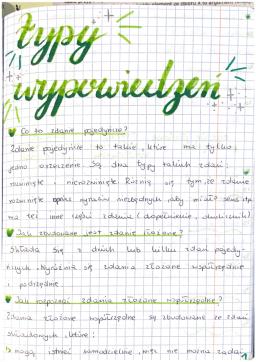 typy
wypowiedzeń
Co to zdanie pojedyncze?
Zdanie pojedyncze to takie, które ma tylko
jedno orzeczenie. Są dwa typy takich zdań:
rozwinięte i nierozwinięte. Różnią się tym, że zdanie
rozwinięte oprócz wyrazów niezbędnych, aby miało sens
ma też inne części zdania (dopełnienie,
Jak zbudowane jest zdanie złożone?
Składa się z dwóch lub kilku zdań pojedy-
nczych. Wyróżnia się zdania złożone współrzędnie
i podrzędnie.
Jak rozpoznać zdania złożone współrzędnie?
Zdania złożone współrzędnie są zbudowane ze zdań
składowych, które:
mogą istnieć samodzielnie, więc nie można zadać